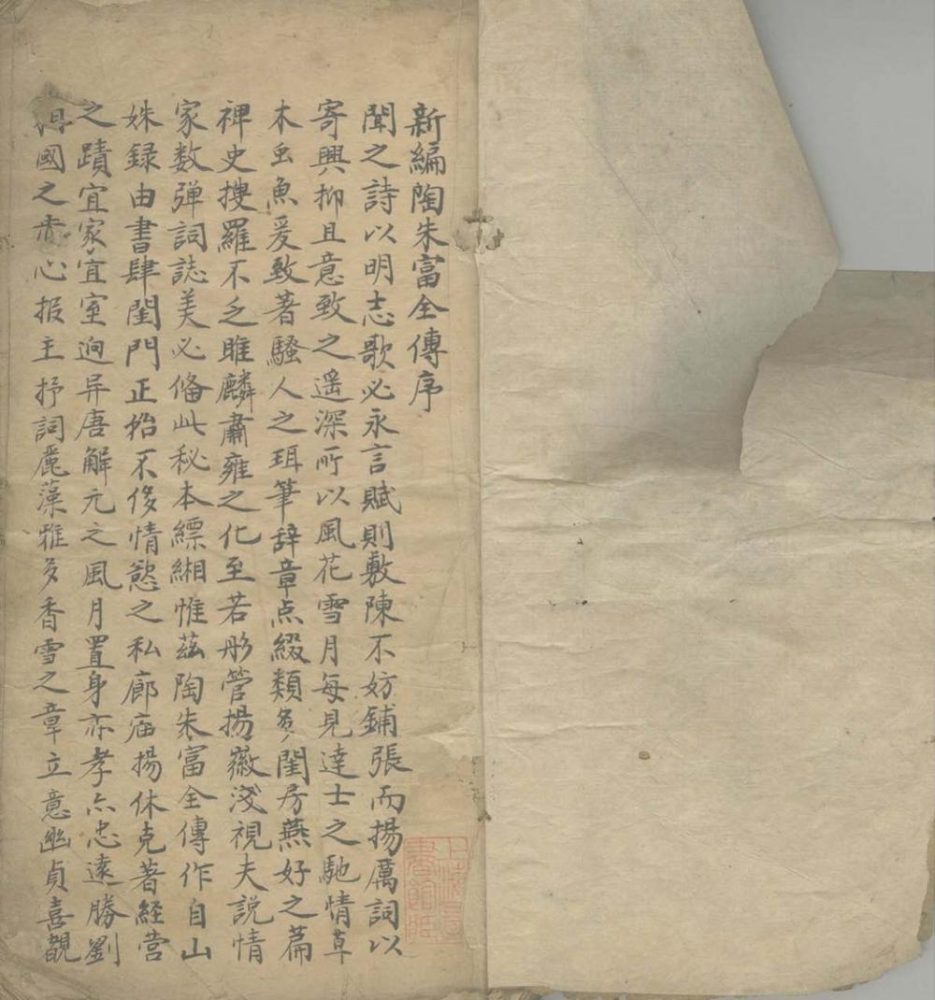 新編陶朱富全傳序
聞之詩以明志歌必永言賦則敷陳不妨鋪張而揚厲詞以
寄興抑且意致之遥深所以風花雪月每見達士之馳情草
木虫魚爰致著騷人之珥筆辞章点綴類多閨房燕好之篇
稗史搜羅不乏雎麟肅雍之化至若彤管揚徽浅視夫説情
家数弹詞誌美必俻此秘本縹緗惟茲陶朱富全傳作自山
姝録由書肆閨門正始不侈情慾之私廊庙揚休克著経营
之蹟宜家宜室迥异唐解元之風月置身亦孝亦忠遠勝劉
國之赤心报主抒詞麗藻雅多香雪之章立意幽貞喜覩
上海圖書館藏